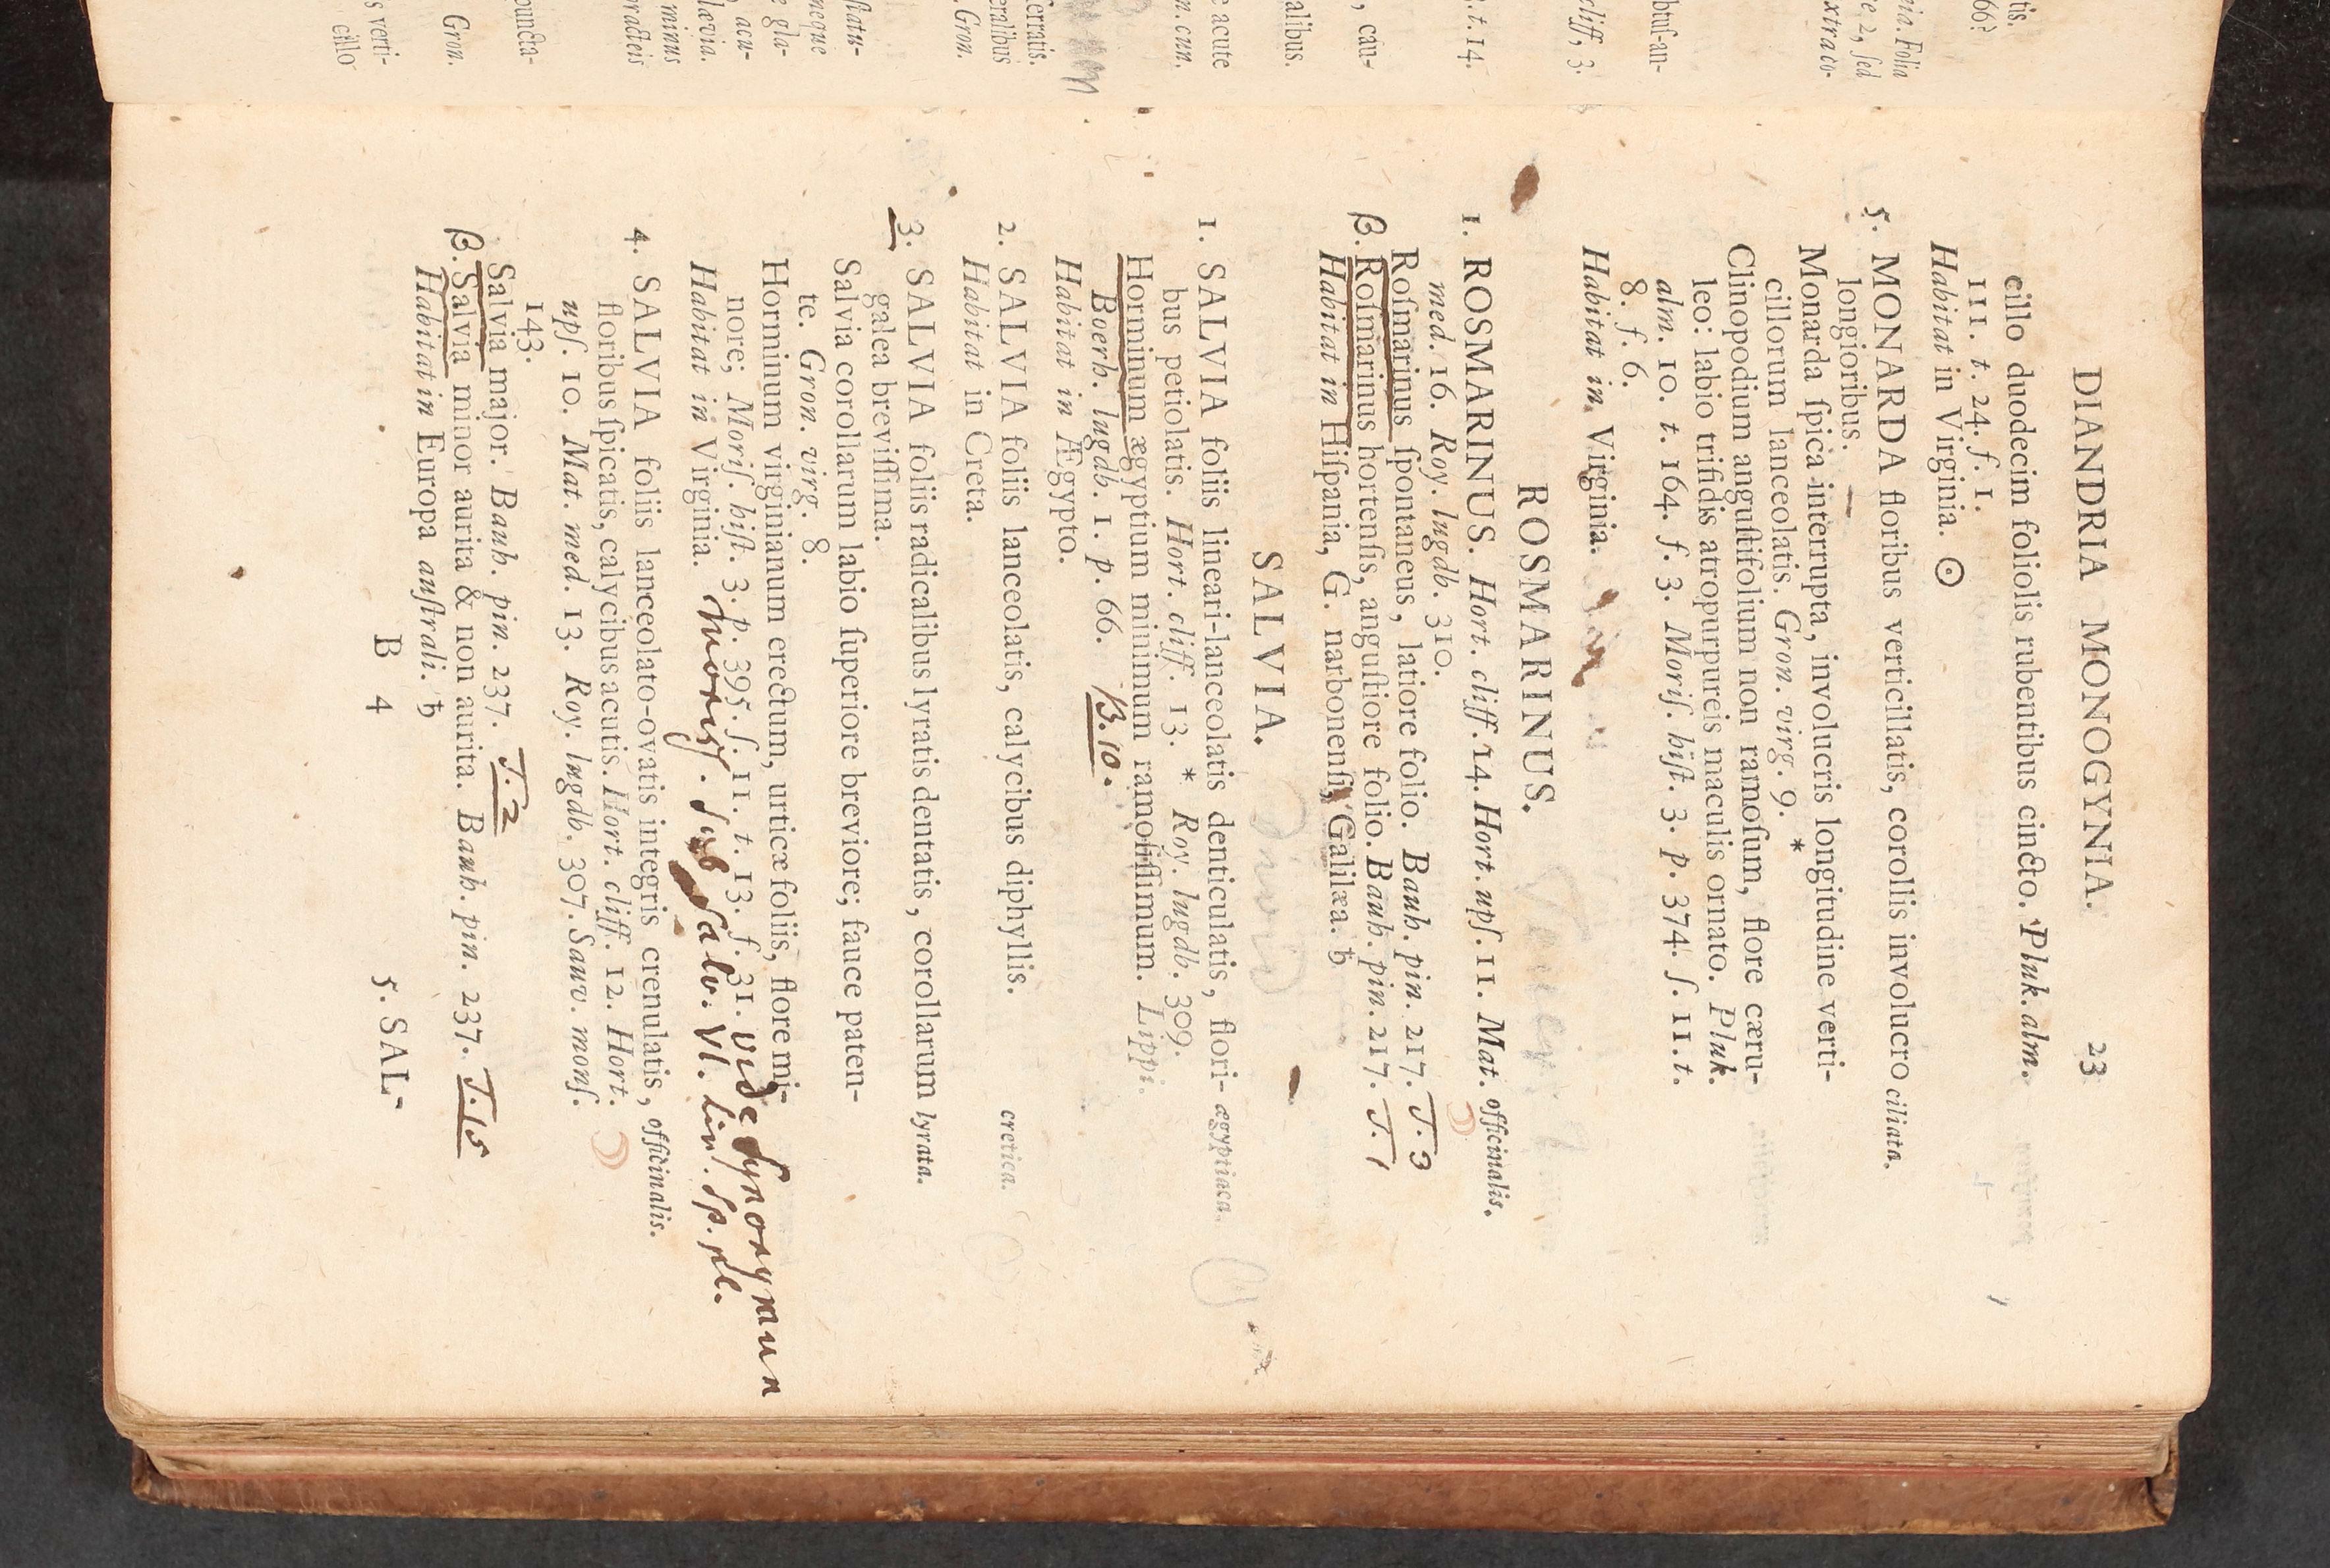 DIANDRIA MONOGYNIA. 23
cillo duodecim foliolis rubentibus cincto. Pluk. alm.
111. t. 24. f. 1.
Habitat in Virginia. ☉
5. MONARDA floribus verticillatis, corollis involucro ciliata.
longioribus.
Monarda ſpica interrupta, involucris longitudine verti-
cillorum lanceolatis. Gron. virg. 9. *
Clinopodium anguſtifolium non ramoſum, flore cæru-
leo: labio trifidis atropurpureis maculis ornato. Pluk.
alm. 10. t. 164. f. 3. Moriſ. hiſt. 3. p. 374. ſ. 11. t.
8. f. 6.
Habitat in Virginia.
ROSMARINUS.
1. ROSMARINUS. Hort. cliff. 14. Hort. upſ. 11. Mat. officinalis.
med. 16. Roy. lugdb. 310.
Roſmarinus ſpontaneus, latiore folio. Bauh. pin. 217. T. 3
β. Roſmarinus hortenſis, anguſtiore folio. Bauh. pin. 217. T. 1
Habitat in Hiſpania, G. narbonenſi, Galilæa. ♄
SALVIA.
1. SALVIA foliis lineari-lanceolatis denticulatis, flori- ægyptiaca.
bus petiolatis. Hort. cliff. 13. * Roy. lugdb. 309.
Horminum ægyptium minimum ramoſiſſimum. Lippi.
Boerh. lugdb. 1. p. 66. B. 10.
Habitat in Ægypto.
2. SALVIA foliis lanceolatis, calycibus diphyllis. cretica.
Habitat in Creta.
3. SALVIA foliis radicalibus lyratis dentatis, corollarum lyrata.
galea breviſſima.
Salvia corollarum labio ſuperiore breviore; fauce paten-
te. Gron. virg. 8.
Horminum virginianum erectum, urticæ foliis, flore mi-
nore; Moriſ. hiſt. 3. p. 395. ſ. 11. t. 13. f. 31. vide Synonymum
Habitat in Virginia. moriſſ. sub Salv. Vl. Lin. Sp. pl.
4. SALVIA foliis lanceolato-ovatis integris crenulatis, officinalis.
floribus ſpicatis, calycibus acutis. Hort. cliff. 12. Hort.
upſ. 10. Mat. med. 13. Roy. lugdb. 307. Sauv. monſ.
143.
Salvia major. Bauh. pin. 237. T. 2
β. Salvia minor aurita & non aurita. Bauh. pin. 237. T. 15
Habitat in Europa auſtrali. ♄
B 4 5. SAL-